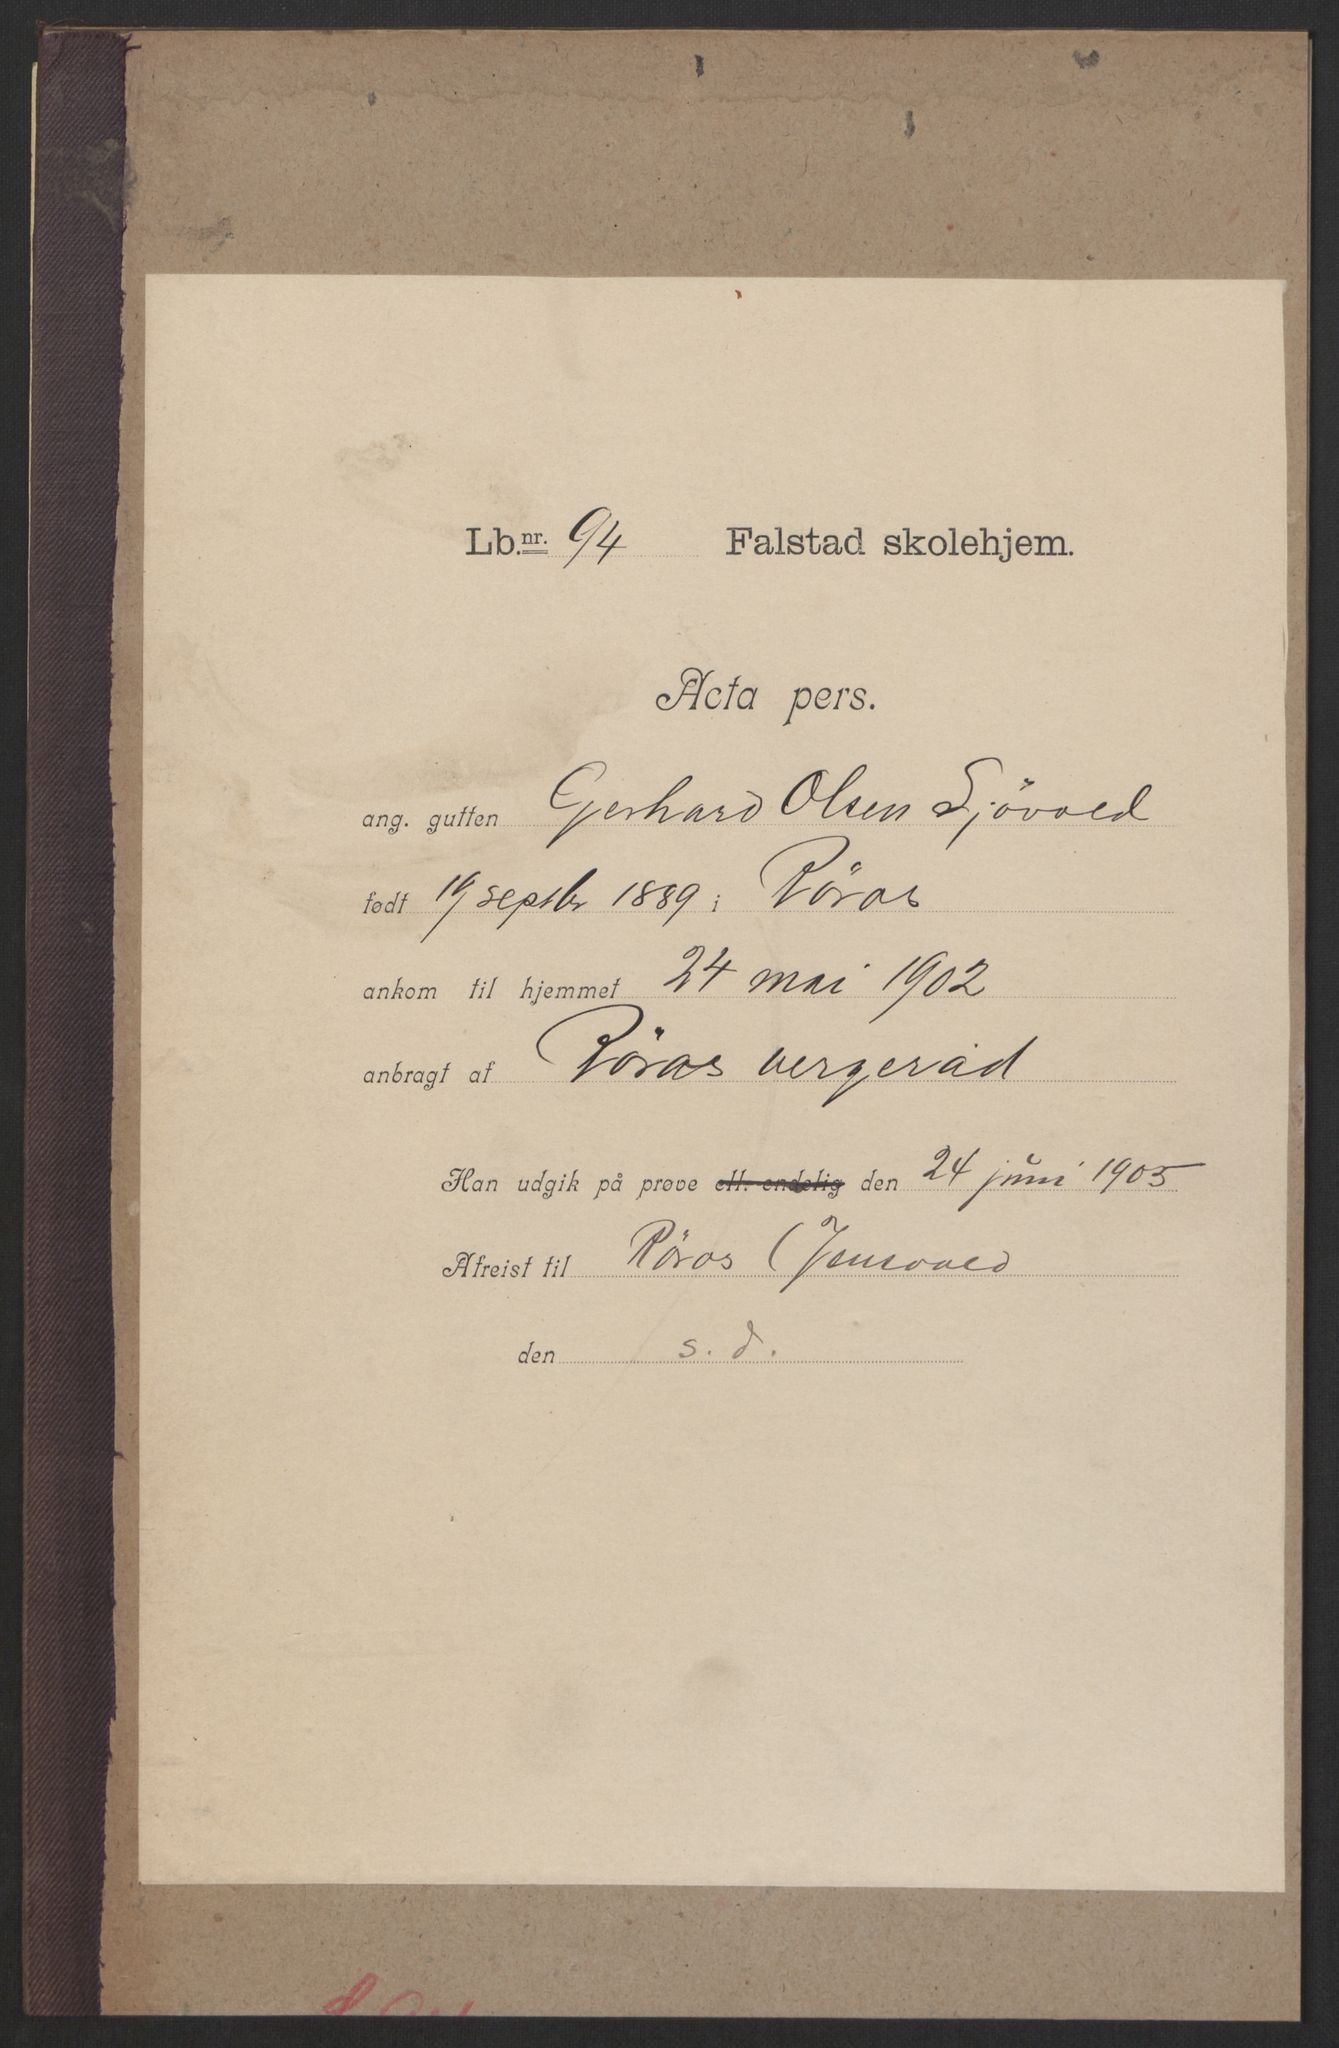 Lb.nr. 94 Falstad skolehjem.
Acta pers.
ang. gutten Gerhard Olsen Sjövold
født 19 septbr 1889 i Röros
ankom til hjemmet 24 mai 1902
anbragt af Röros vergeråd
Han udgik på prøve ell. endelig den 24 juni 1905
Afreist til Röros (Jensvold
den s. d.